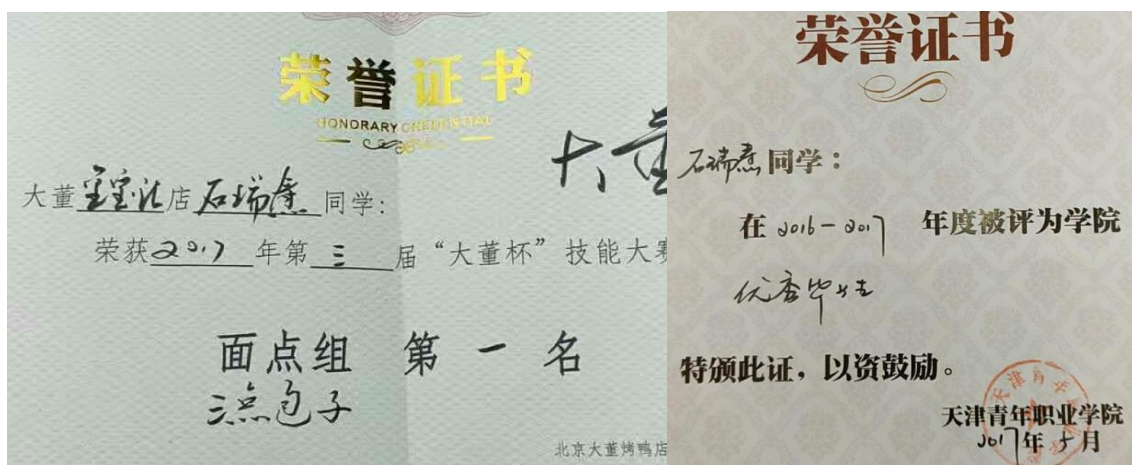 荣誉证书
HONORARY CREDENTIAL
大董
大董店石瑞熹同学：
荣获2017年第三届“大董杯”技能大赛
面点组 第一名
三点包子
北京大董烤鸭店
荣誉证书
石瑞熹同学：
在2016-2017 年度被评为学院
优秀毕业生
特颁此证，以资鼓励。
天津青年职业学院
2017年5月